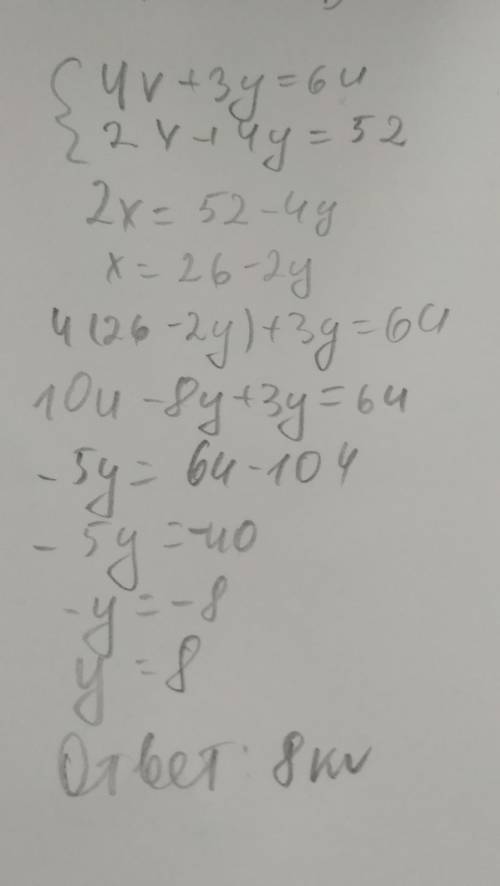 4x+3y=64
2x+4y=52
2x=52-4y
x=26-2y
4(26-2y)+3y=64
104-8y+3y=64
-5y=64-104
-5y=-40
-y=-8
y=8
Ответ: 8км